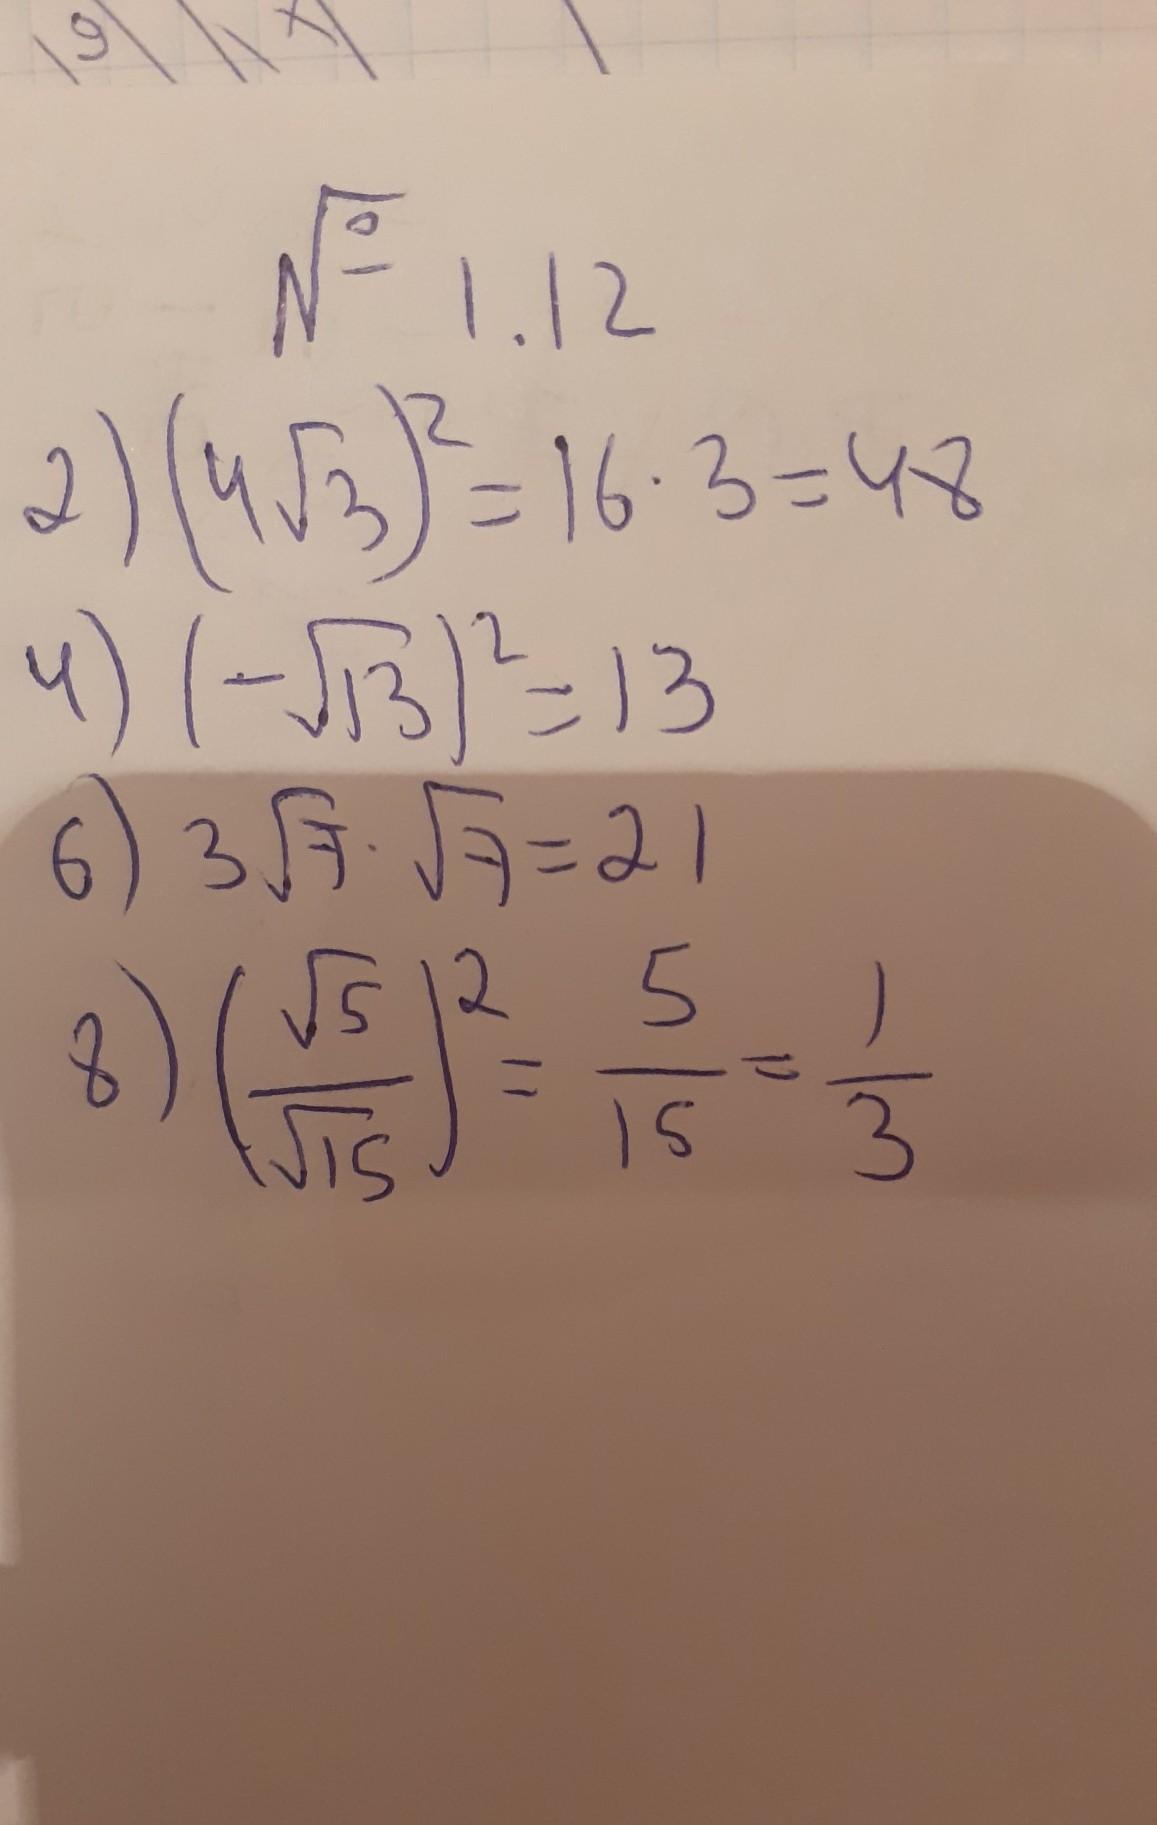 № 1.12
2) (4√3)² = 16 · 3 = 48
4) (-√13)² = 13
6) 3√7 · √7 = 21
8) (√5/√15)² = 5/15 = 1/3